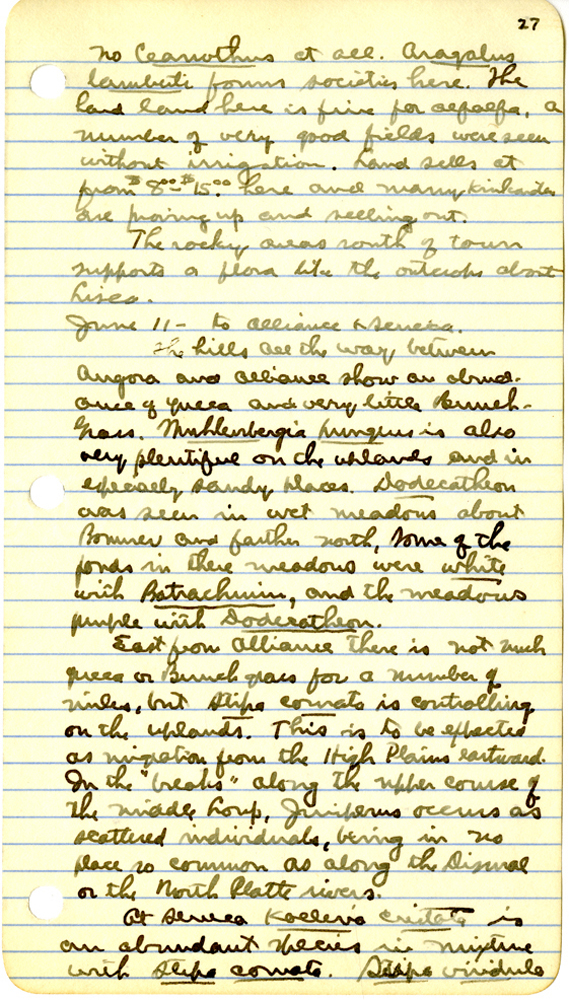 27
no Ceanothus at all. Aragalus
lamberti forms societies here. The
hard land here is fine for alfalfa, a
number of very good fields were seen
without irrigation. Land sells at
from $8.00 - $15.00 here and many Kinkaiders
are proving up and selling out.
The rocky areas south of town
supports a flora like the outcrops about
Lisco.
June 11 - to Alliance & Seneca.
The hills all the way between
Angora and Alliance show an abund-
ance of yucca and very little Bunch-
grass. Muhlenbergia pungens is also
very plentiful on the uplands and in
especially sandy places. Dodecatheon
was seen in wet meadows about
Bonner and farther north, some of the
ponds in these meadows were white
with Batrachium, and the meadows
purple with Dodecatheon.
East from Alliance there is not much
yucca or Bunch grass for a number of
miles, but Stipa comata is controlling
on the uplands. This is to be expected
as migration from the High Plains eastward.
In the "breaks" along the upper course of
the middle Loup, Juniperus occurs as
scattered individuals, being in no
place so common as along the Dismal
or the North Platte rivers.
At Seneca Koeleria cristata is
an abundant species in mixture
with Stipa comata. Stipa viridula